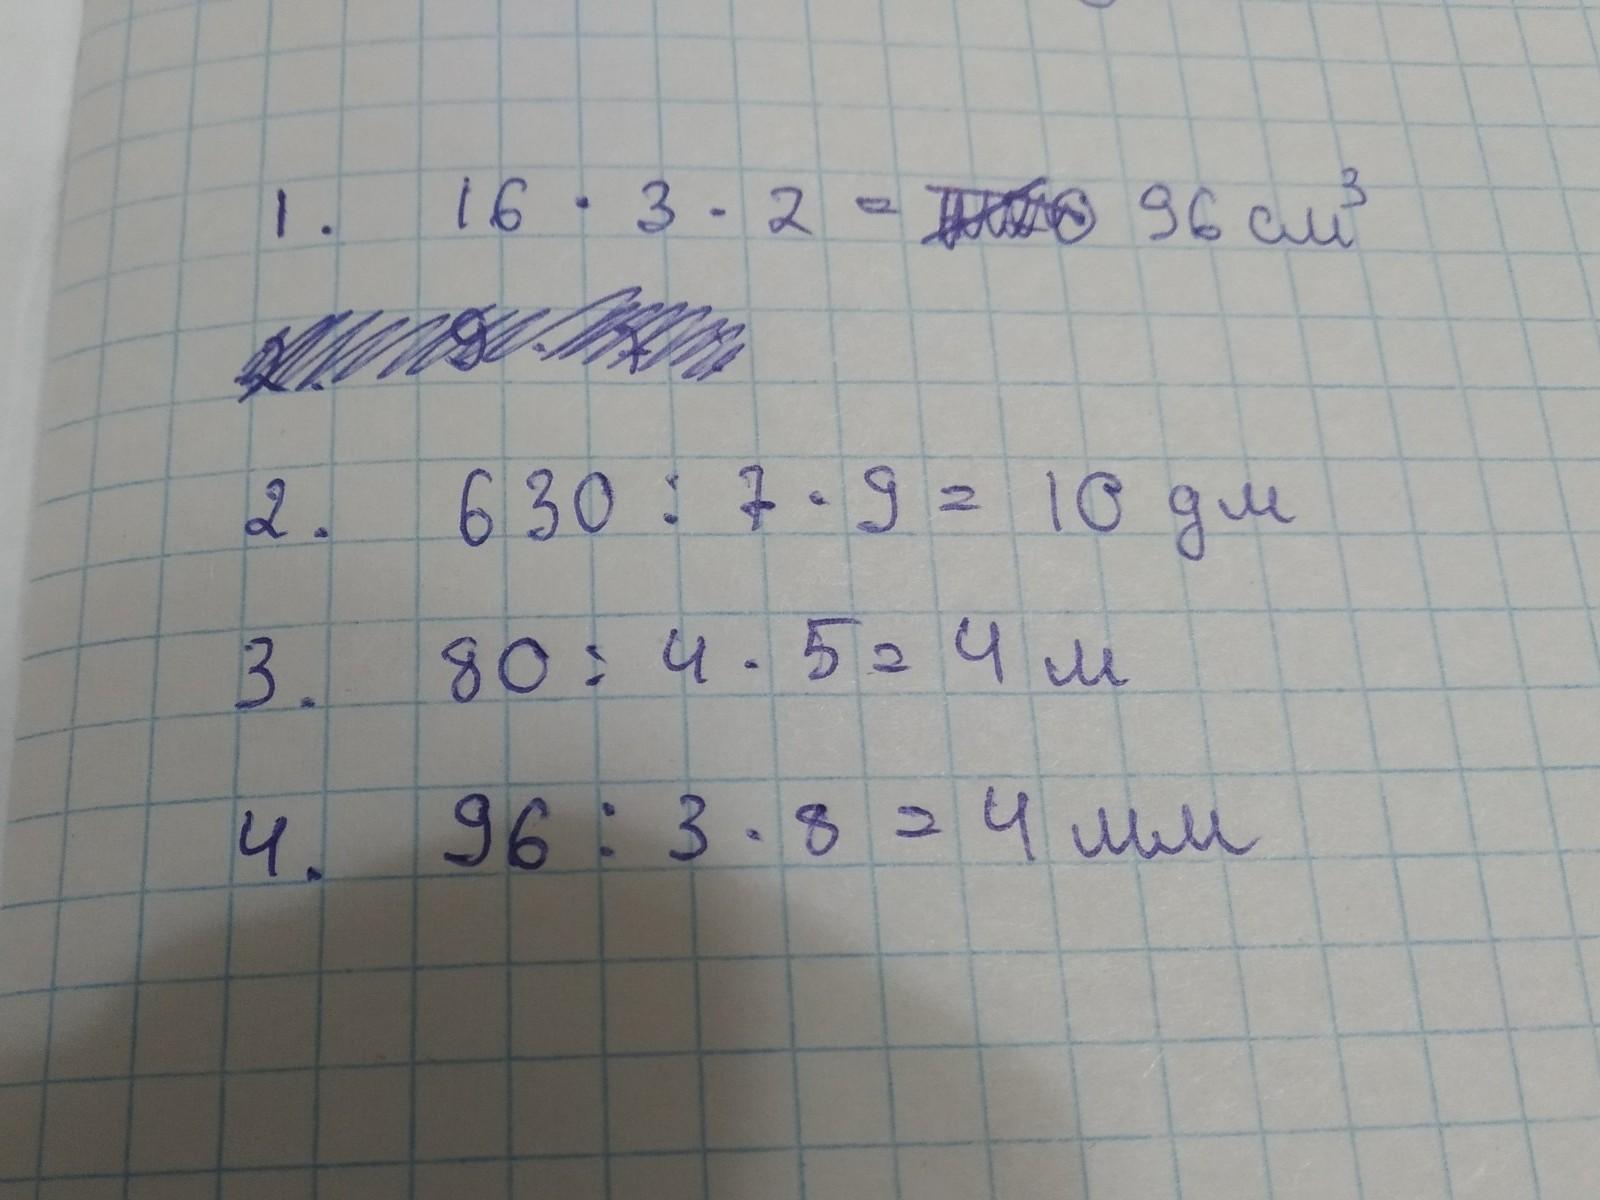 1. 16 · 3 · 2 = 96 см³
2. 630 : 7 · 9 = 10 дм
3. 80 : 4 · 5 = 4 м
4. 96 : 3 · 8 = 4 мм